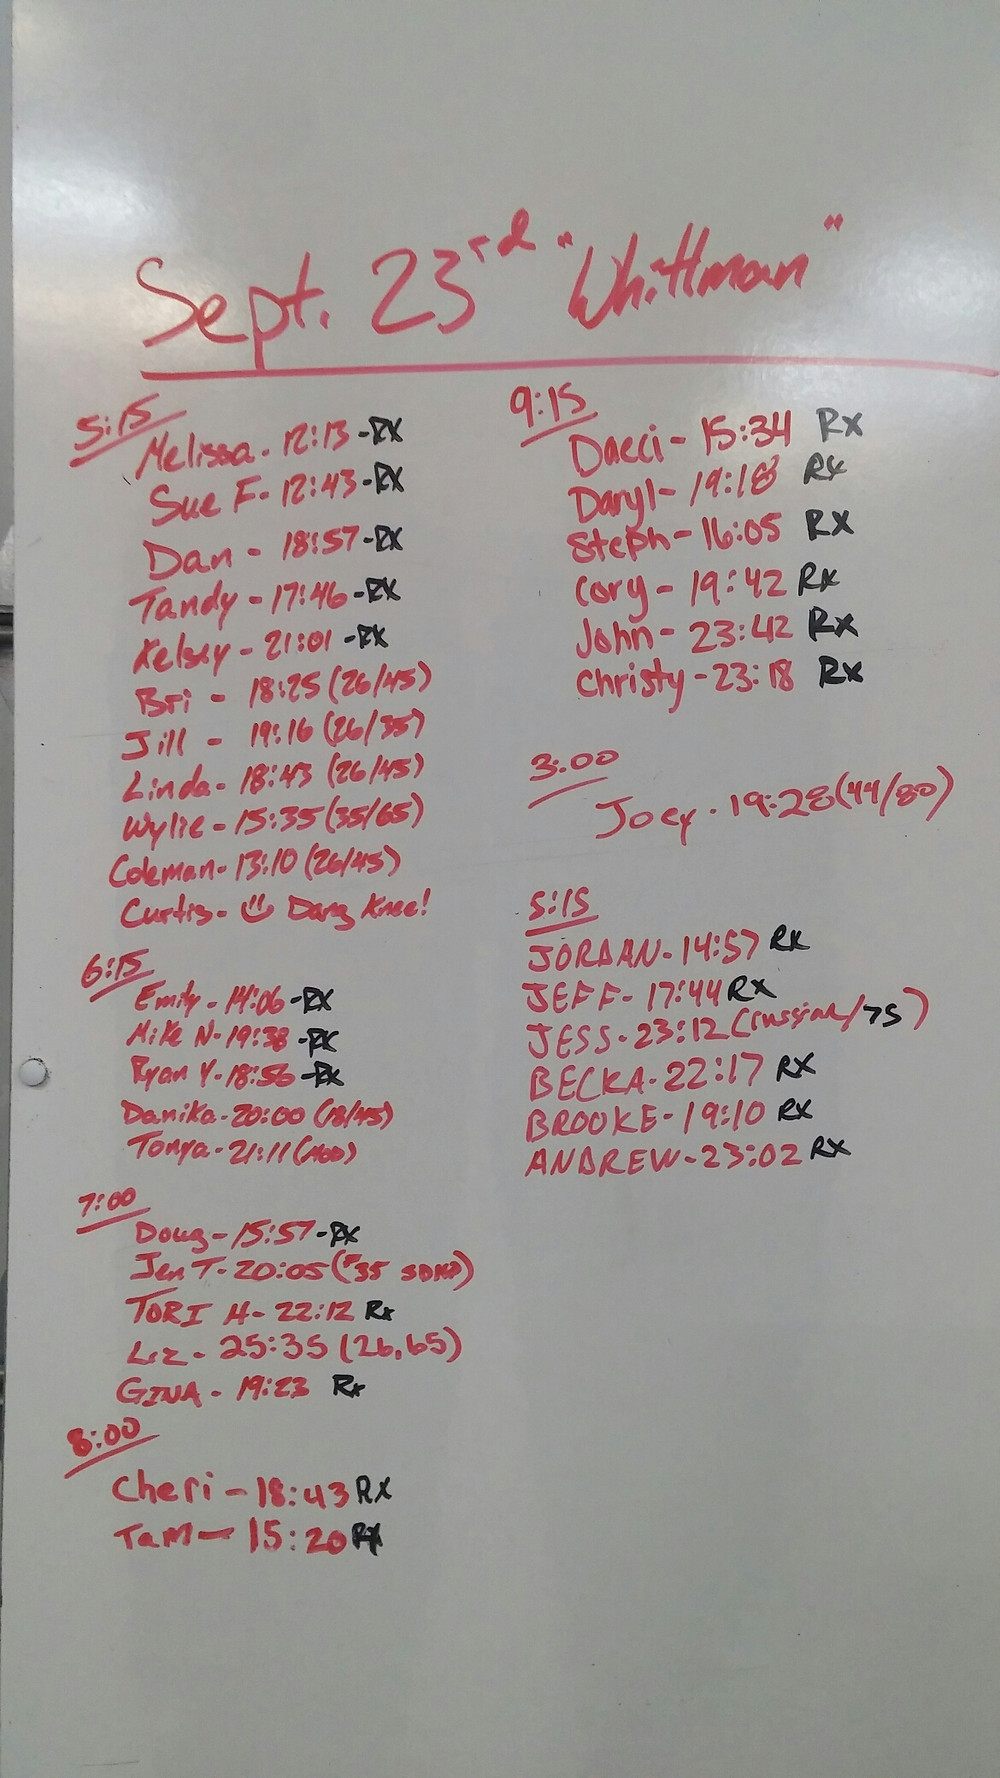 Sept. 23rd "Whittman"
5:15
Melissa - 12:13 - RX
Sue F - 12:43 - RX
Dan - 18:57 - RX
Tandy - 17:46 - RX
Kelsey - 21:01 - RX
Bri - 18:25 (26/45)
Jill - 19:16 (26/35)
Linda - 18:43 (26/45)
Wylie - 15:35 (35/65)
Coleman - 13:10 (26/45)
Curtis - Dang Knee!
6:15
Emily - 14:06 - RX
Mike N - 19:38 - RX
Ryan Y - 18:56 - RX
Danika - 20:00 (18/45)
Tonya - 21:11
7:00
Doug - 15:57 - RX
Jen T - 20:05 (#35 SDHP)
TORI H - 22:12 Rx
Liz - 25:35 (26,65)
GINA - 19:23 Rx
8:00
Cheri - 18:43 RX
Tam - 15:20 RX
9:15
Daeci - 15:34 Rx
Daryl - 19:18 Rx
Steph - 16:05 RX
Cory - 19:42 Rx
John - 23:42 Rx
Christy - 23:18 Rx
3:00
Joey - 19:28 (44/80)
5:15
JORDAN - 14:57 Rx
JEFF - 17:44 RX
JESS - 23:12 (russian/75)
BECKA - 22:17 RX
BROOKE - 19:10 RX
ANDREW - 23:02 RX